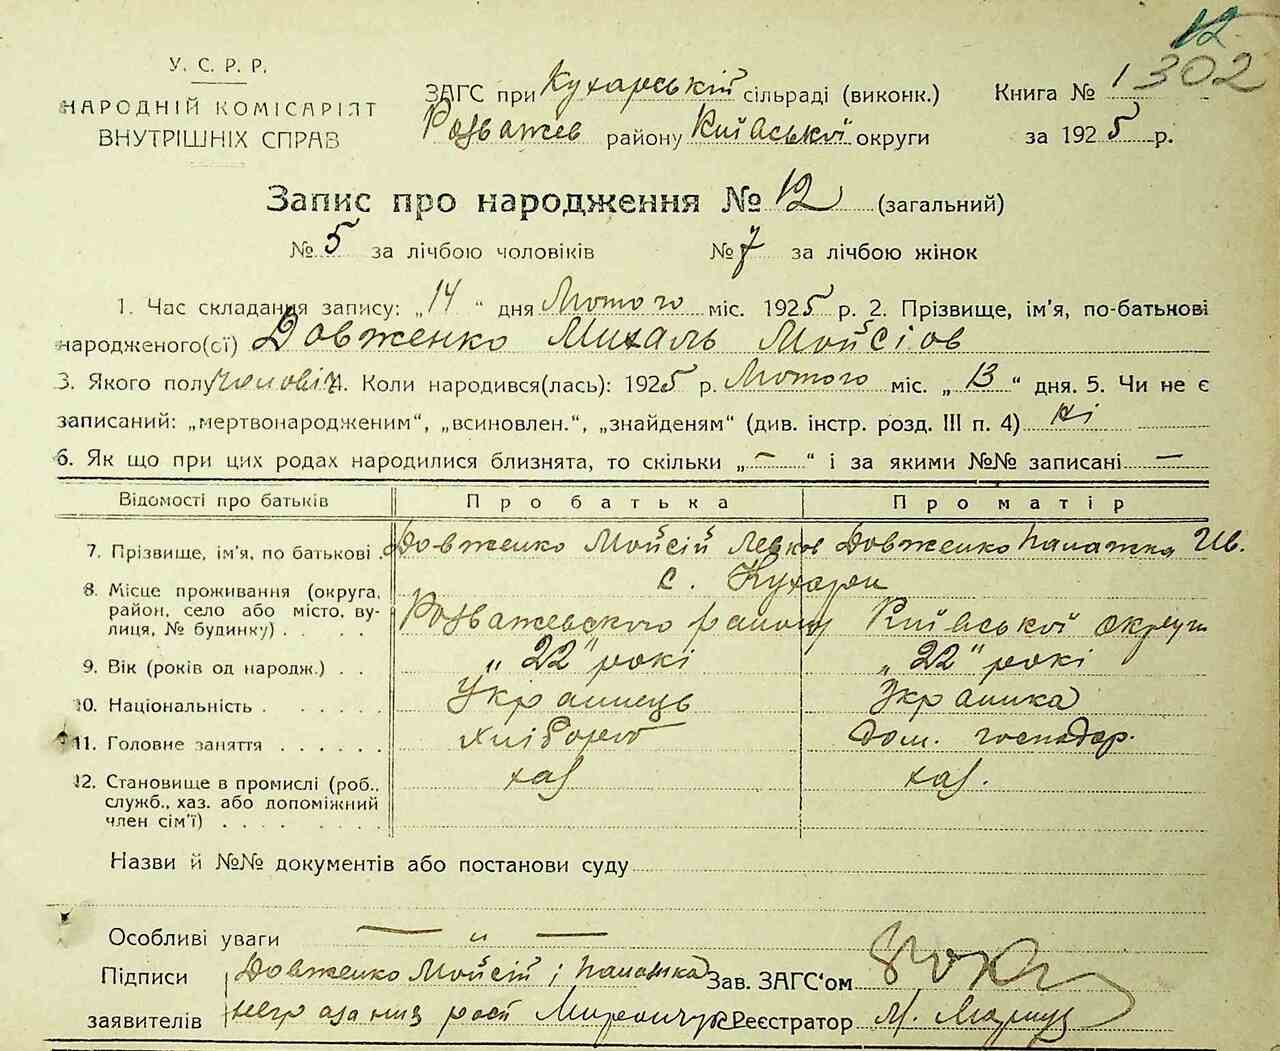 12
302
У. С. Р. Р.
НАРОДНІЙ КОМІСАРІЯТ
ВНУТРІШНІХ СПРАВ
ЗАГС при Кухарській сільраді (виконк.)
Розважев району Київської округи
Книга № 1
за 1925 р.
Запис про народження № 12 (загальний)
№ 5 за лічбою чоловіків № 7 за лічбою жінок
1. Час складання запису: „14“ дня Лютого міс. 1925 р. 2. Прізвище, ім’я, по-батькові
народженого(ої) Довженко Михаль Мойсіов
3. Якого полу чоловіч 4. Коли народився(лась): 1925 р. Лютого міс. „13“ дня. 5. Чи не є
записаний: „мертвонародженим“, „всиновлен.“, „знайденям“ (див. інстр. розд. III п. 4) ні
6. Як що при цих родах народилися близнята, то скільки „—“ і за якими №№ записані —
Відомості про батьків Про батька Про матір
7. Прізвище, ім’я, по батькові . Довженко Мойсій Левков Довженко Палажка Ив.
8. Місце проживання (округа, район, село або місто, вулиця, № будинку) . . . . . с. Кухари
Розважевского району Київської округи
9. Вік (років од народж.) . . „22“ рокі „22“ рокі
10. Національність . . . . . . Українець Українка
11. Головне заняття . . . . . . хлібороб Дом. господар.
12. Становище в промислі (роб., служб., хаз. або допоміжний член сім’ї) . . . . . . . хаз хаз.
Назви й №№ документів або постанови суду
Особливі уваги — „ —
Підписи Довженко Мойсій і Палажка Зав. ЗАГС‘ом
заявителів неграманиз Реєстратор М.